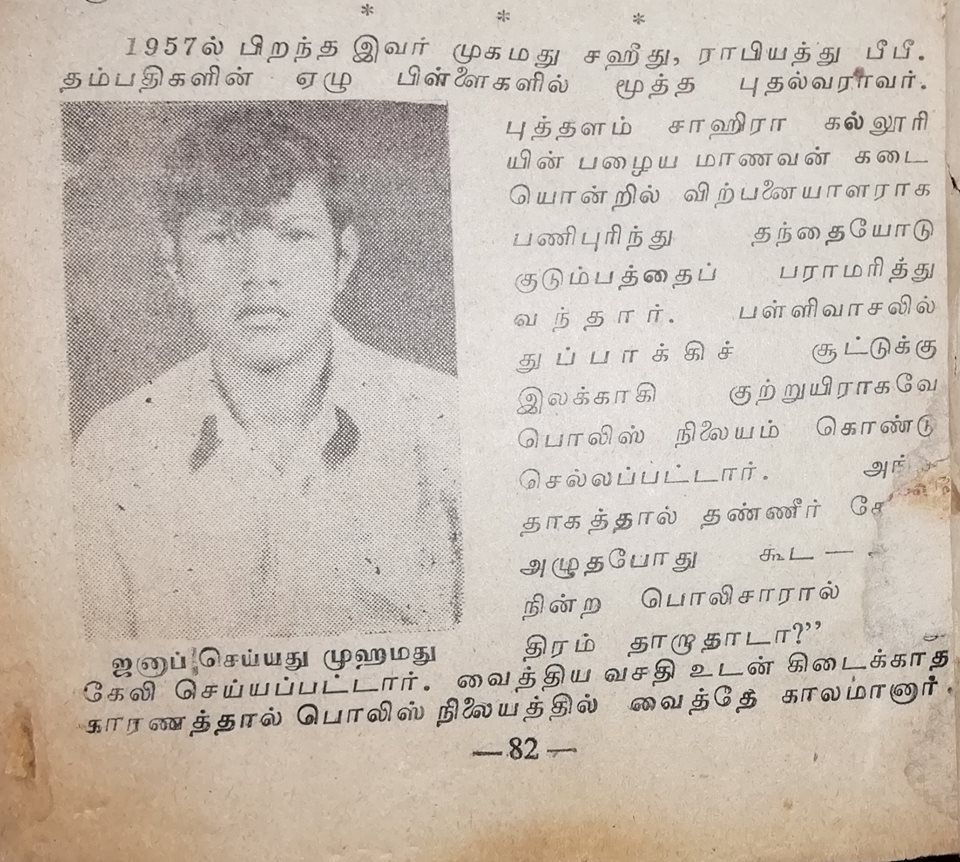 * * *
1957ல் பிறந்த இவர் முகமது சஹீது, ராபியத்து பீபீ.
தம்பதிகளின் ஏழு பிள்ளைகளில் மூத்த புதல்வராவர்.
புத்தளம் சாஹிரா கல்லூரி
யின் பழைய மாணவன் கடை
யொன்றில் விற்பனையாளராக
பணிபுரிந்து தந்தையோடு
குடும்பத்தைப் பராமரித்து
வந்தார். பள்ளிவாசலில்
துப்பாக்கிச் சூட்டுக்கு
இலக்காகி குற்றுயிராகவே
பொலிஸ் நிலையம் கொண்டு
செல்லப்பட்டார்.
தாகத்தால் தண்ணீர்
அழுதபோது கூட —
நின்ற பொலிசாரால்
திரம் தாறாதாடா?”
ஜனாப் செய்யது முஹமது
கேலி செய்யப்பட்டார். வைத்திய வசதி உடன் கிடைக்காத
காரணத்தால் பொலிஸ் நிலையத்தில் வைத்தே காலமானார்.
— 82 —